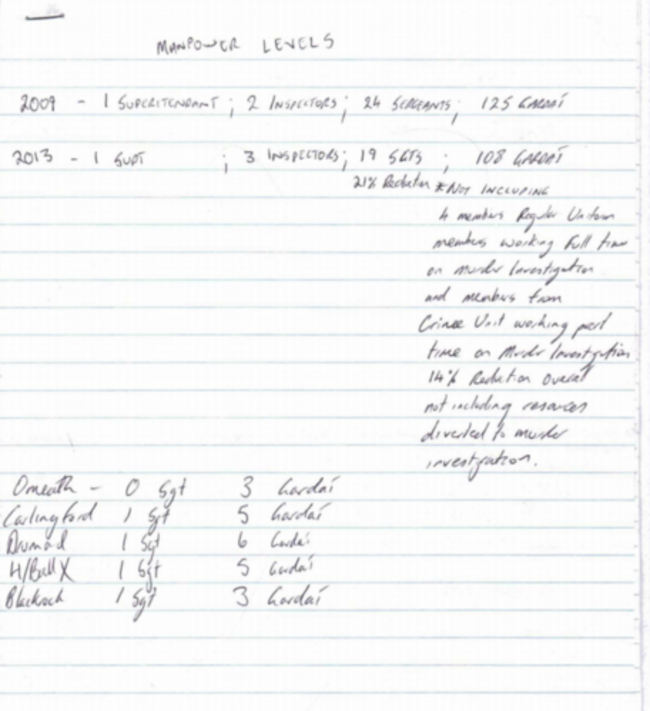 MANPOWER LEVELS
2009 - 1 SUPERITENDANT ; 2 INSPECTORS ; 24 SERGEANTS ; 125 GARDAÍ
2013 - 1 SUPT ; 3 INSPECTORS ; 19 SGTS ; 108 GARDAÍ
21% Reduction * NOT INCLUDING
4 members Regular Uniform
members working Full time
on Murder Investigation
and members from
Crime Unit working part
time on Murder Investigation
14% Reduction overall
not including resources
diverted to murder
investigation.
Omeath - 0 Sgt 3 Gardaí
Carlingford 1 Sgt 5 Gardaí
Dromad 1 Sgt 6 Gardaí
H/Ball X 1 Sgt 5 Gardaí
Blackrock 1 Sgt 3 Gardaí